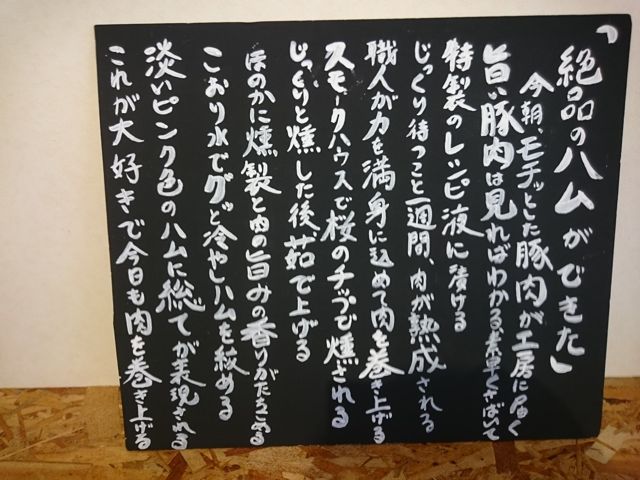 「絶品のハムができた」
今朝、モチッとした豚肉が工房に届く
旨い豚肉は見ればわかる素早くさばいて
特製のレシピ液に漬ける
じっくり待つこと一週間、肉が熟成される
職人が力を満身に込めて肉を巻き上げる
スモークハウスで桜のチップで燻される
じっくりと燻した後茹で上げる
ほのかに燻製と肉の旨みの香りがたちこめる
こおり水でグッと冷やしハムを絞める
淡いピンク色のハムに総てが表現される
これが大好きで今日も肉を巻き上げる